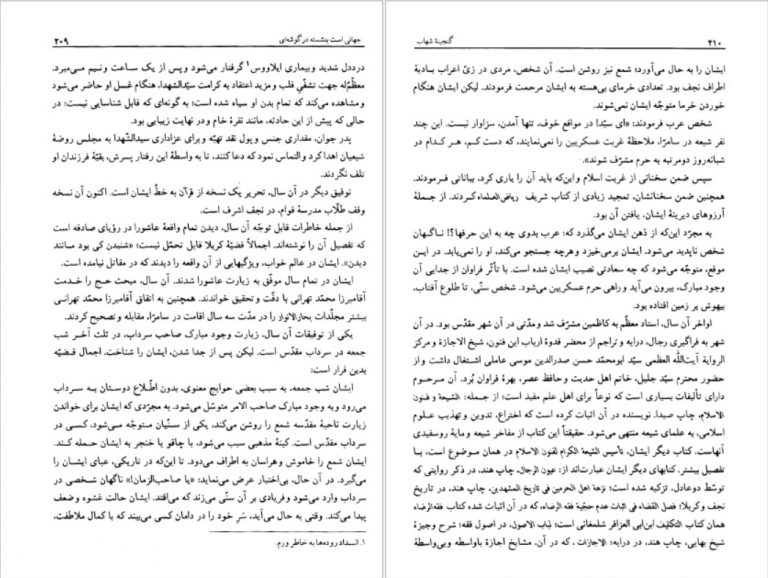 جهانی است بنشسته در گوشه‌ای ۲۰۹
درد دل شدید و بیماری ایلاووس۱ گرفتار می‌شود و پس از یک ساعت و نیم می‌میرد.
معظّم‌له جهت تشفّی قلب و مزید اعتقاد به کرامت سیّدالشهدا، هنگام غسل او حاضر می‌شود
و مشاهده می‌کند که تمام بدن او سیاه شده است؛ به گونه‌ای که قابل شناسایی نیست؛ در
حالی که پیش از این حادثه، مانند نقرۀ خام و در نهایت زیبایی بود.
پدر جوان، مقداری جنس و پول نقد تهیّه و برای عزاداری سیدالشّهدا به مجلس روضۀ
شیعیان اهدا کرد و التماس نمود که دعا کنند، تا به واسطۀ این رفتار پسرش، بقیّۀ فرزندان او
تلف نگردند.
توفیق دیگر در آن سال، تحریر یک نسخه از قرآن به خطّ ایشان است. اکنون آن نسخه
وقف طلّاب مدرسۀ قوام، در نجف اشرف است.
از جمله خاطرات قابل توجّه آن سال، دیدن تمام واقعۀ عاشورا در رؤیای صادقه است
که تفصیل آن را نوشته‌اند. اجمالاً قضیّۀ کربلا قابل تحمّل نیست؛ «شنیدن کی بود مانند
دیدن». ایشان در عالم خواب، ویژگیهایی از آن واقعه را دیدند که در مقاتل نیامده است.
ایشان در تمام سال موفّق به زیارت عاشورا شدند. آن سال، مبحث حج را خدمت
آقامیرزا محمّد تهرانی با دقّت و تحقیق خواندند. همچنین به اتفاق آقامیرزا محمّد تهرانی
بیشتر مجلّدات بحارالانوار را در مدّت سه سال اقامت در سامرّا، مقابله و تصحیح کردند.
یکی از توفیقات آن سال، زیارت وجود مبارک صاحب سرداب، در ثلث آخر شب
جمعه در سرداب مقدّس است. لیکن پس از جدا شدن، ایشان را شناخت. اجمال قضیّه
بدین قرار است:
ایشان شب جمعه، به سبب بعضی حوایج معنوی، بدون اطّلاع دوستان به سرداب
می‌رود و به وجود مبارک صاحب الامر متوسّل می‌شود. به مجرّدی که ایشان برای خواندن
زیارت ناحیۀ مقدّسه شمع را روشن می‌کند، یکی از سنّیان متوجّه می‌شود، کسی در
سرداب مقدّس است. کینۀ مذهبی سبب می‌شود، با چاقو یا خنجر به ایشان حمله کند.
ایشان شمع را خاموش و هراسان به اطراف می‌دود. تا این‌که در تاریکی، عبای ایشان را
می‌گیرد. در آن حال، بی‌اختیار عرض می‌نماید: «یا صاحب‌الزمان!» ناگهان شخصی در
سرداب وارد می‌شود و فریادی بر آن سنّی می‌زند که می‌افتد. ایشان حالت غشوه و ضعف
پیدا می‌کند. وقتی به حال می‌آید، سَر خود را در دامان کسی می‌بیند که با کمال ملاطفت،
۱. انسداد روده‌ها به خاطر ورم.
۲۱۰ گنجینۀ شهاب
ایشان را به حال می‌آورد؛ شمع نیز روشن است. آن شخص، مردی در زیّ اعراب بادیۀ
اطراف نجف بود. تعدادی خرمای بی‌هسته به ایشان مرحمت فرمودند. لیکن ایشان هنگام
خوردن خرما متوجّه ایشان نمی‌شوند.
شخص عرب فرمودند: «ای سیّد! در مواقع خوف، تنها آمدن، سزاوار نیست. این چند
نفر شیعه در سامرّا، ملاحظۀ غربت عسکریین را نمی‌نمایند، که دست کم، هر کدام در
شبانه‌روز دو مرتبه به حرم مشرّف شوند».
سپس ضمن سخنانی از غربت اسلام و این‌که باید آن را یاری کرد، بیاناتی فرمودند.
همچنین ضمن سخنانشان، تمجید زیادی از کتاب شریف ریاض‌العلماء کردند. از جملۀ
آرزوهای دیرینۀ ایشان، یافتن آن بود.
به مجرّد این‌که از ذهن ایشان می‌گذرد که: عرب بدوی چه به این حرفها؟! ناگهان
شخص ناپدید می‌شود. ایشان برمی‌خیزد و هرچه جستجو می‌کند، او را نمی‌یابد. در این
موقع، متوجّه می‌شود که چه سعادتی نصیب ایشان شده است. با تأثّر فراوان از جدایی آن
وجود مبارک، بیرون می‌آید و راهی حرم عسکریین می‌شود. شخص سنّی، تا طلوع آفتاب،
بیهوش بر زمین افتاده بود.
اواخر آن سال، استاد معظّم به کاظمین مشرّف شد و مدّتی در آن شهر مقدّس بود. در آن
شهر به فراگیری رجال، درایه و تراجم از محضر قدوۀ ارباب این فنون، شیخ الاجازة و مرکز
الروایة آیت‌اللّه العظمی سیّد ابومحمّد حسن صدرالدین موسی عاملی اشتغال داشت و از
حضور محترم سیّد جلیل، خاتم اهل حدیث و حافظ عصر، بهرۀ فراوان بُرد. آن مرحوم
دارای تألیفات بسیاری است که نوعاً برای اهل علم مفید است؛ از جمله: الشیعة و فنون
الاسلام، چاپ صیدا. نویسنده در آن اثبات کرده است که اختراع، تدوین و تهذیب علوم
اسلامی، به علمای شیعه منتهی می‌شود. حقیقتاً این کتاب از مفاخر شیعه و مایۀ روسفیدی
آنهاست. کتاب دیگر ایشان، تأسیس الشیعة الکرام لفنون الاسلام در همان موضوع است، با
تفصیل بیشتر. کتابهای دیگر ایشان عبارت‌اند از: عیون الرّجال، چاپ هند، در ذکر رواتی که
توسّط دو عادل، تزکیه شده است؛ نزهة اهل الحرمین فی تاریخ المشهدین، چاپ هند، در تاریخ
نجف و کربلا؛ فصل القضاء فی اثبات عدم حجّیة فقه الرضا، که در آن اثبات شده کتاب فقه‌الرضاء
همان کتاب التکلیف ابن‌ابی العزاقر شلمغانی است؛ لباب الاصول، در اصول فقه؛ شرح وجیزۀ
شیخ بهایی، چاپ هند، در درایه؛ الاجازات، که در آن، مشایخ اجازۀ باواسطه و بی‌واسطۀ